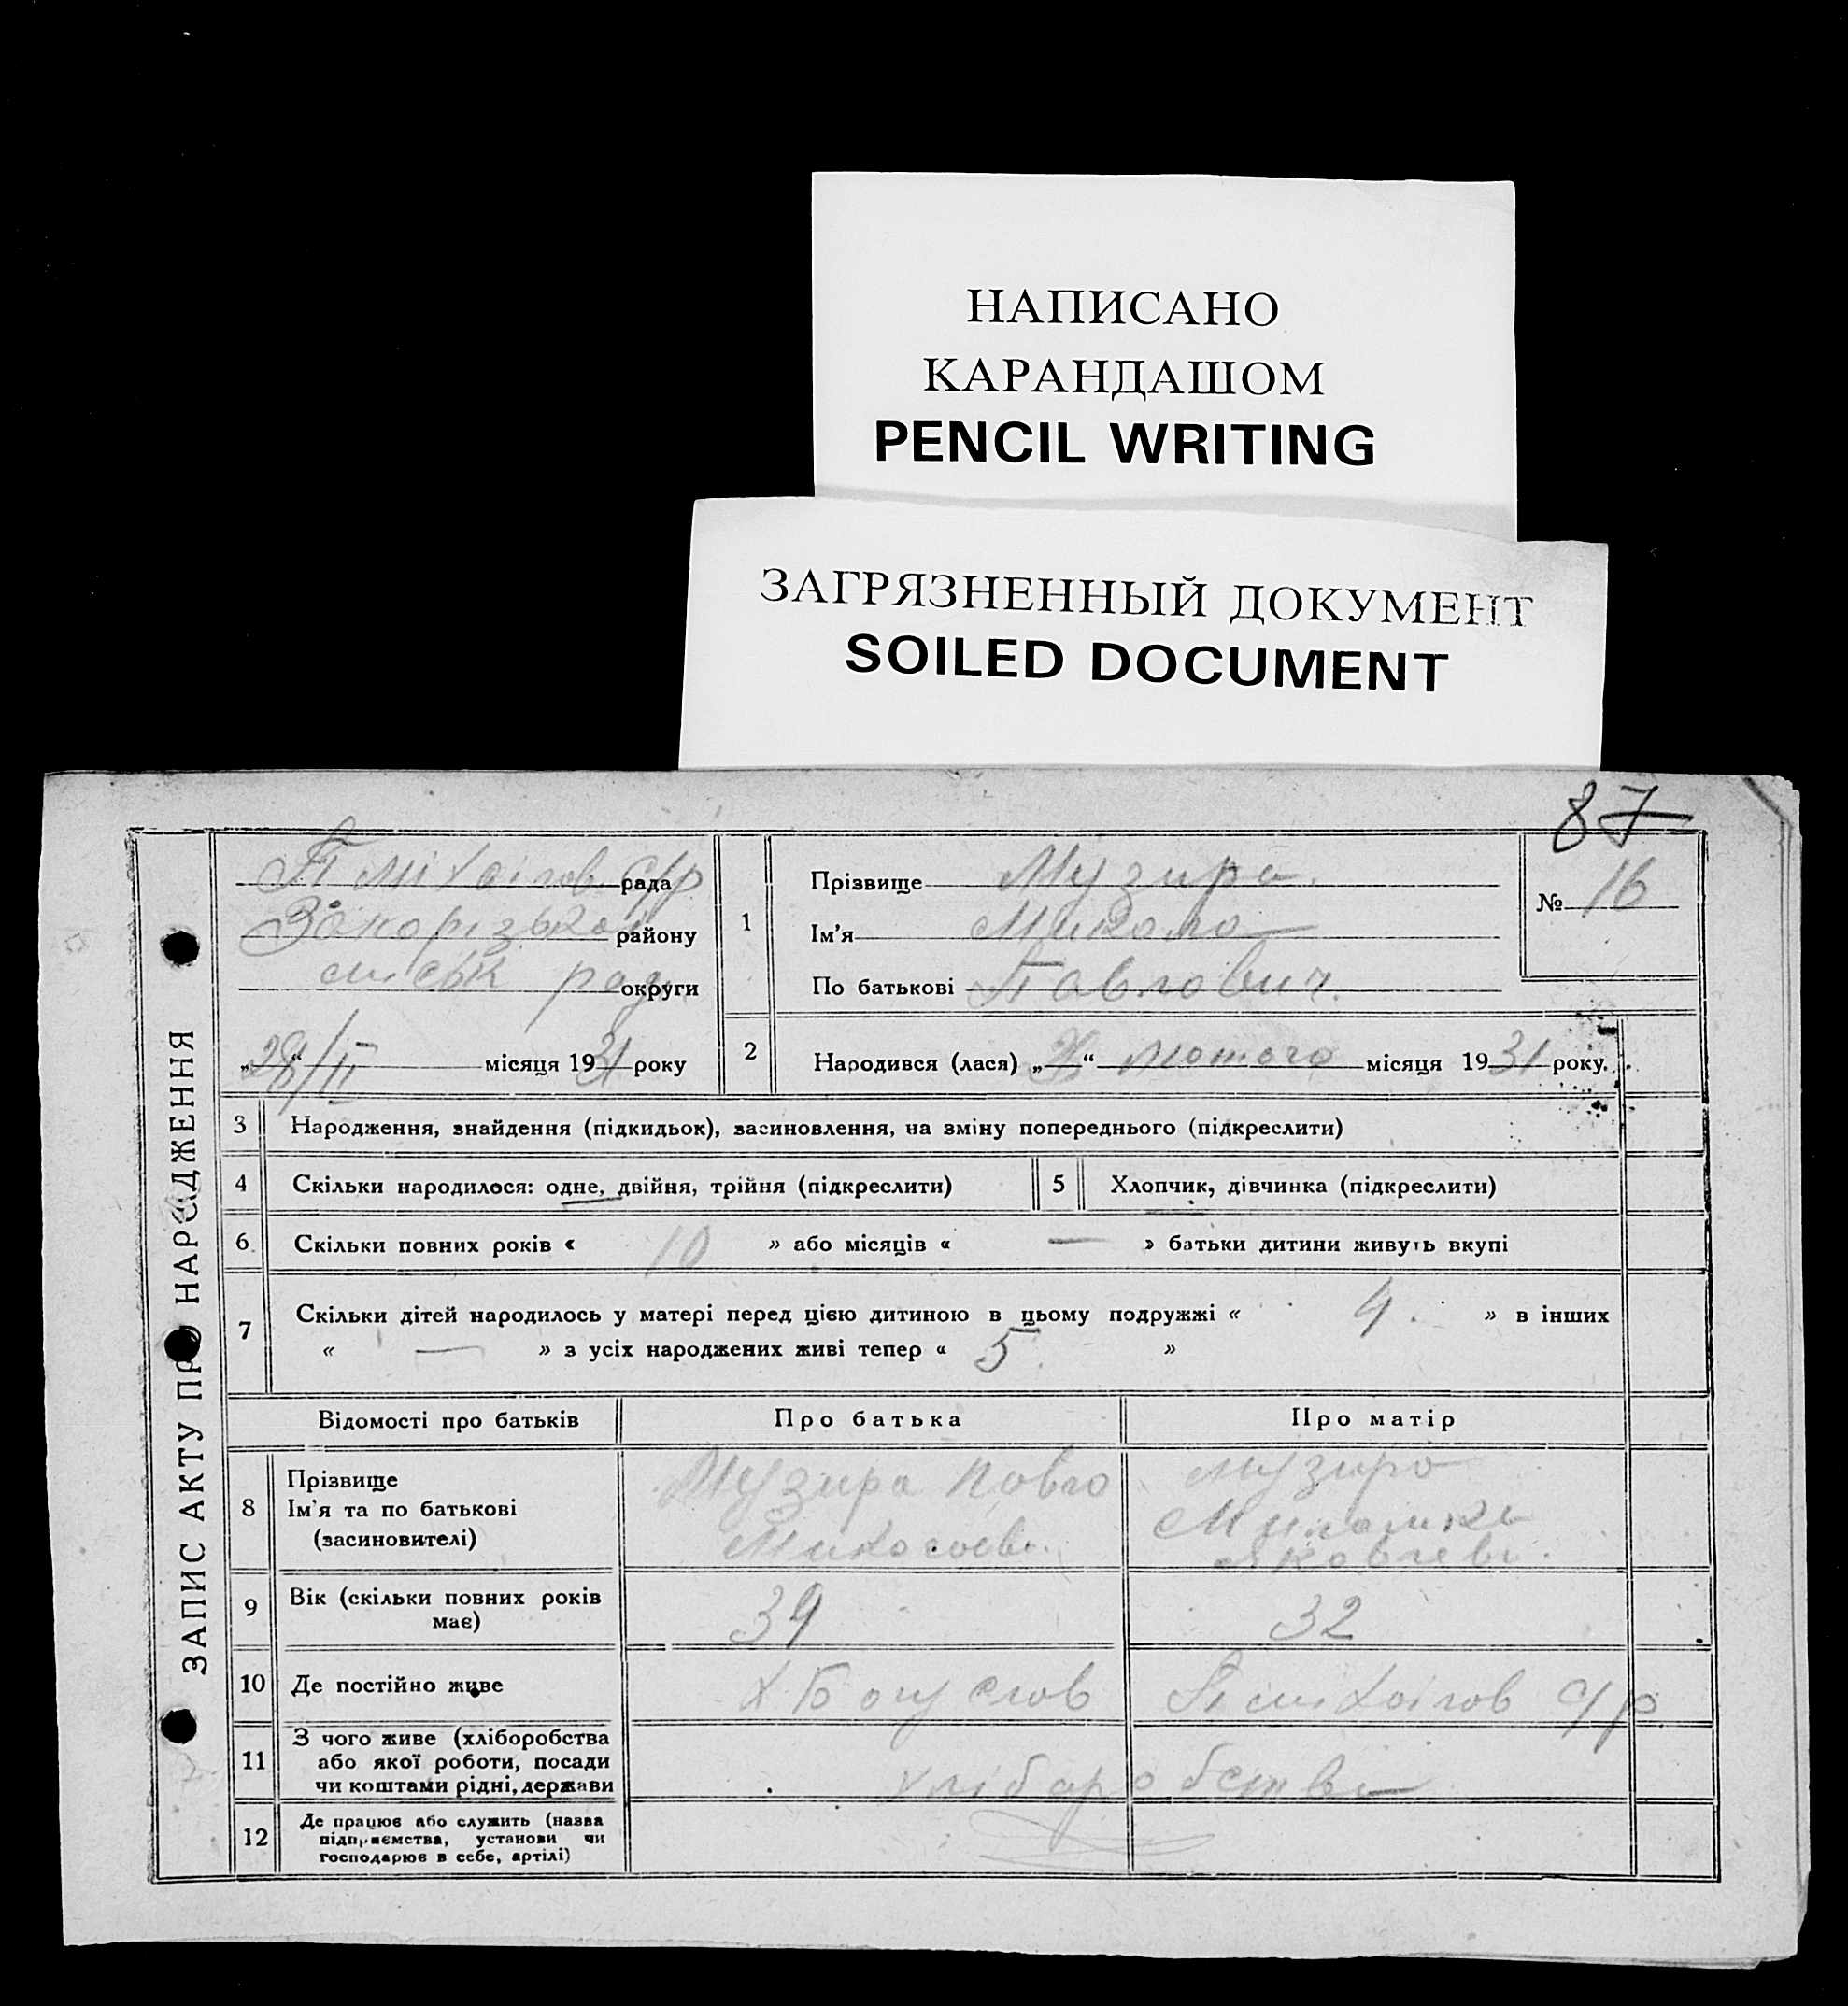 НАПИСАНО
КАРАНДАШОМ
PENCIL WRITING
ЗАГРЯЗНЕННЫЙ ДОКУМЕНТ
SOILED DOCUMENT
87
ЗАПИС АКТУ ПРО НАРОДЖЕННЯ
П Міхайлов. с/р рада
району
міськ рад округи
„28/II місяця 1931 року
1
Прізвище Музира.
Ім'я Микола
По батькові Павлович.
№ 16
2
Народився (лася) „ “ Лютого місяця 1931 року.
3 Народження, знайдення (підкидьок), засиновлення, на зміну попереднього (підкреслити)
4 Скільки народилося: одне, двійня, трійня (підкреслити)
5 Хлопчик, дівчинка (підкреслити)
6. Скільки повних років « 10 » або місяців « — » батьки дитини живуть вкупі
7 Скільки дітей народилось у матері перед цією дитиною в цьому подружжі « 4. » в інших
« — » з усіх народжених живі тепер « 5 »
Відомості про батьків Про батька Про матір
8 Прізвище
Ім'я та по батькові
(засиновителі)
Музира Павло
Музира
9 Вік (скільки повних років
має)
39
32
10 Де постійно живе Х Богуслов П Міхайлов с/р
11 З чого живе (хліборобства
або якої роботи, посади
чи коштами рідні, держави
хлібаробство
12 Де працює або служить (назва
підприємства, установи чи
господарює в себе, артілі)